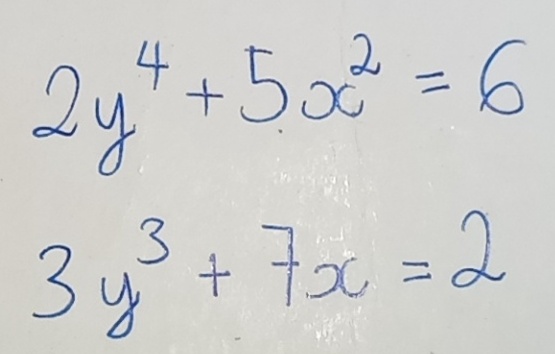 2y⁴ + 5x² = 6
3y³ + 7x = 2